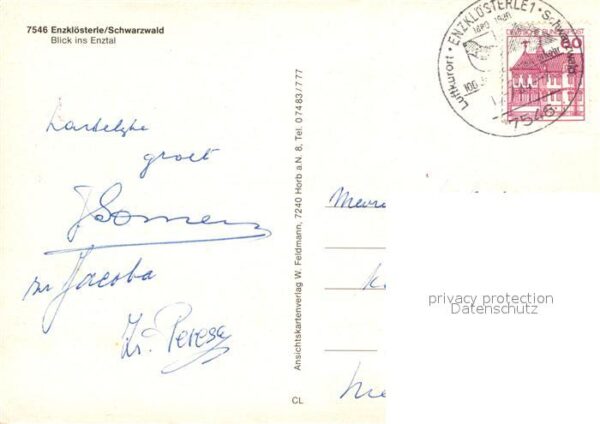 7546 Enzklösterle/Schwarzwald
Blick ins Enztal
ENZKLÖSTERLE 1 · Schwarzwald
Luftkurort
7546
60
Hartelijke
groet
zr Jacoba
Zr. Peresa
Ansichtskartenverlag W. Feldmann, 7240 Horb a.N. 8, Tel. 07483/777
CL
Mevr
privacy protection
Datenschutz